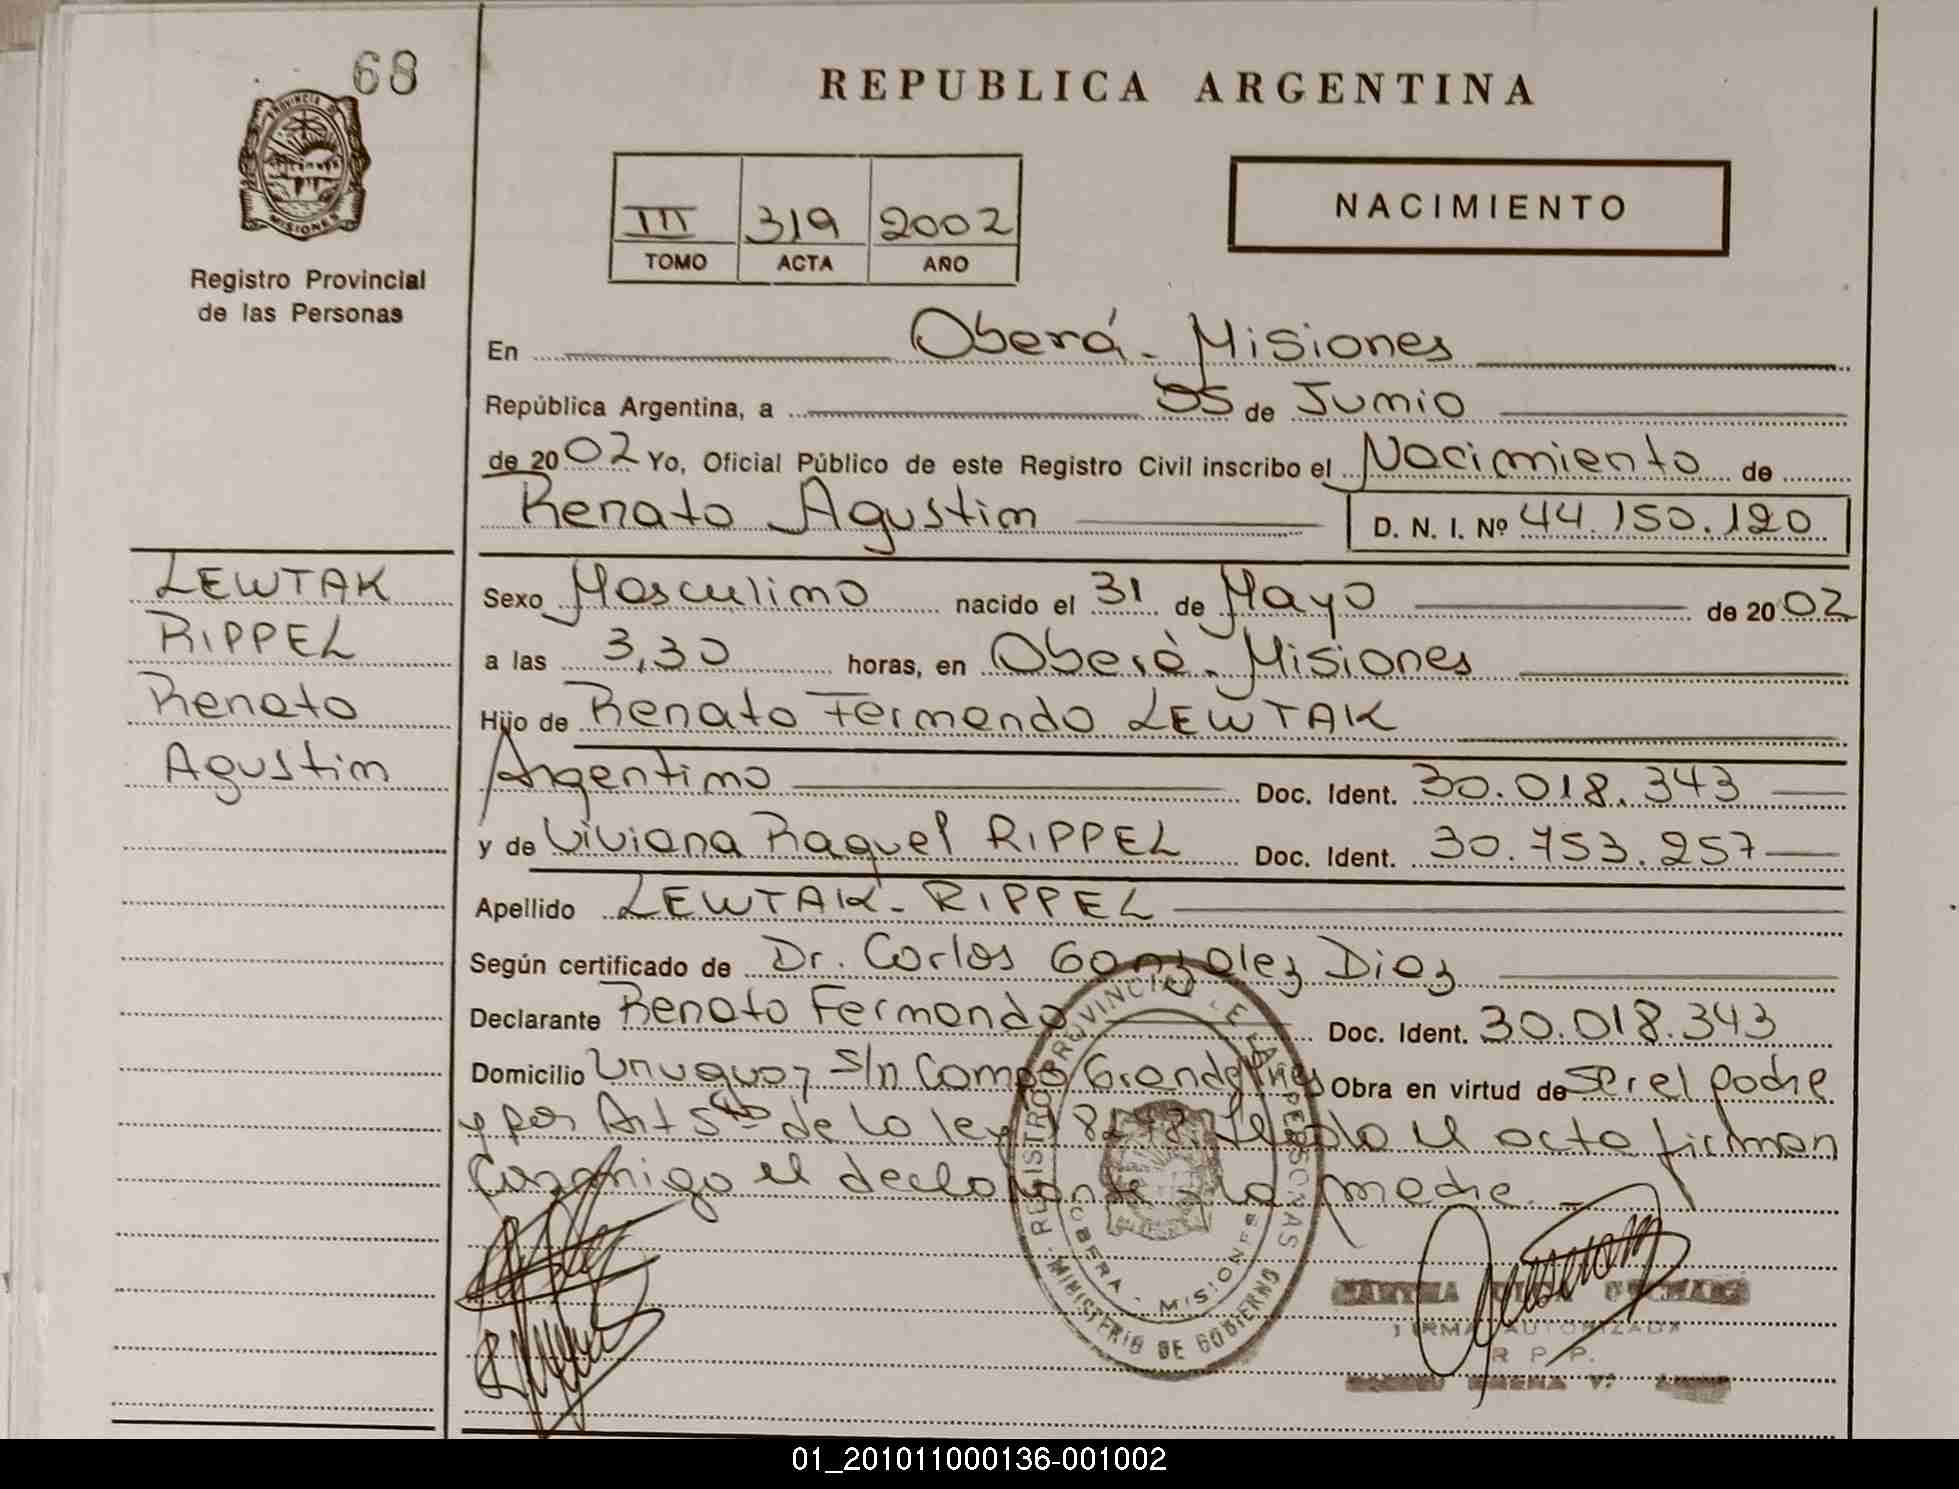 68
PROVINCIA DE
MISIONES
Registro Provincial
de las Personas
REPUBLICA ARGENTINA
III 319 2002
TOMO ACTA AÑO
NACIMIENTO
En Oberá - Misiones
República Argentina, a 05 de Junio
de 2002 Yo, Oficial Público de este Registro Civil inscribo el Nacimiento de
Renato Agustin D. N. I. Nº 44.150.120
LEWTAK
RIPPEL
Renato
Agustin
Sexo Masculino nacido el 31 de Mayo de 2002
a las 3,30 horas, en Oberá - Misiones
Hijo de Renato Fernando LEWTAK
Argentino Doc. Ident. 30.018.343
y de Viviana Raquel RIPPEL Doc. Ident. 30.753.257
Apellido LEWTAK - RIPPEL
Según certificado de Dr. Carlos Gonzalez Diaz
Declarante Renato Fernando Doc. Ident. 30.018.343
Domicilio Uruguay s/n Campo Grande Mnes Obra en virtud de ser el padre
y por Art 5to de la ley 18248. Leída el acta firman
conmigo el declarante y la madre. -
REGISTRO PROVINCIAL DE LAS PERSONAS
OBERA - MISIONES
MINISTERIO DE GOBIERNO
FIRMA AUTORIZADA
R. P. P.
01_201011000136-001002